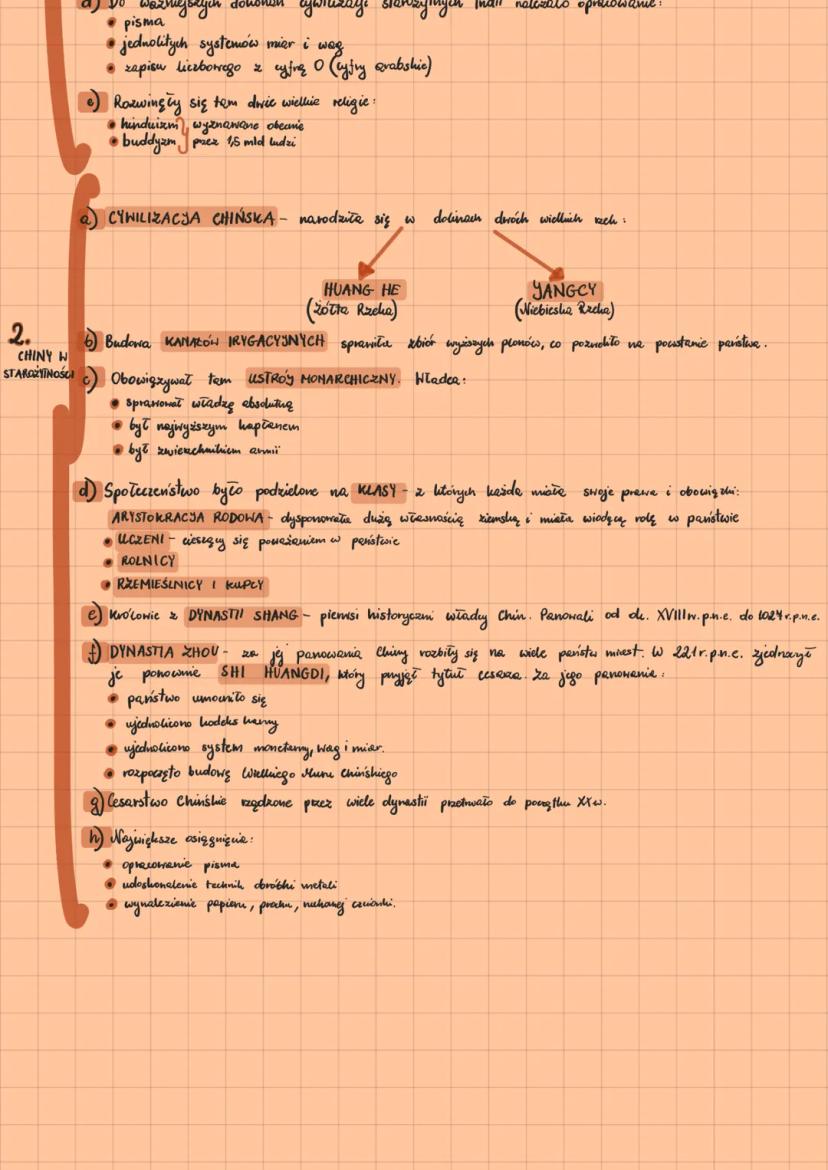 d) Do ważniejszych dokonań cywilizacji starożytnych Indii należało opracowanie:
• pisma
• jednolitych systemów miar i wag
• zapisu liczbowego z cyfrą 0 (cyfry arabskie)
e) Rozwinęły się tam dwie wielkie religie:
• hinduizm } wyznawane obecnie
• buddyzm } przez 1,5 mld ludzi
a) CYWILIZACJA CHIŃSKA - narodziła się w dolinach dwóch wielkich rzek:
HUANG HE YANGCY
(Żółta Rzeka) (Niebieska Rzeka)
2.
CHINY W
STAROŻYTNOŚCI
b) Budowa KANAŁÓW IRYGACYJNYCH sprawiła zbiór wyższych plonów, co pozwoliło na powstanie państwa.
c) Obowiązywał tam USTRÓJ MONARCHICZNY. Władca:
• sprawował władzę absolutną
• był najwyższym kapłanem
• był zwierzchnikiem armii
d) Społeczeństwo było podzielone na KLASY - z których każda miała swoje prawa i obowiązki:
ARYSTOKRACJA RODOWA - dysponowała dużą własnością ziemską i miała wiodącą rolę w państwie
• UCZENI - cieszący się poważaniem w państwie
• ROLNICY
• RZEMIEŚLNICY I KUPCY
e) Królowie z DYNASTII SHANG - pierwsi historyczni władcy Chin. Panowali od ok. XVIII w.p.n.e. do 1024 r.p.n.e.
f) DYNASTIA ZHOU - za jej panowania Chiny rozbiły się na wiele państw miast. W 221 r.p.n.e. zjednoczył
je ponownie SHI HUANGDI, który przyjął tytuł cesarza. Za jego panowania:
• państwo umocniło się
• ujednolicono kodeks karny
• ujednolicono system monetarny, wag i miar.
• rozpoczęto budowę Wielkiego Muru Chińskiego
g) Cesarstwo Chińskie rządzone przez wiele dynastii przetrwało do początku XX w.
h) Największe osiągnięcia:
• opracowanie pisma
• udoskonalenie technik obróbki metali
• wynalezienie papieru, prochu, ruchomej czcionki.